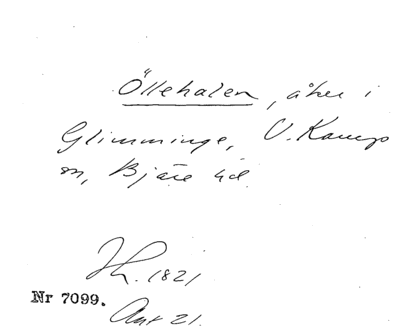 Öllehalen, åker i
Glimminge, V. Karup
sn, Bjäre hd.
Jh. 1821
Nr 7099.
Akt 21.